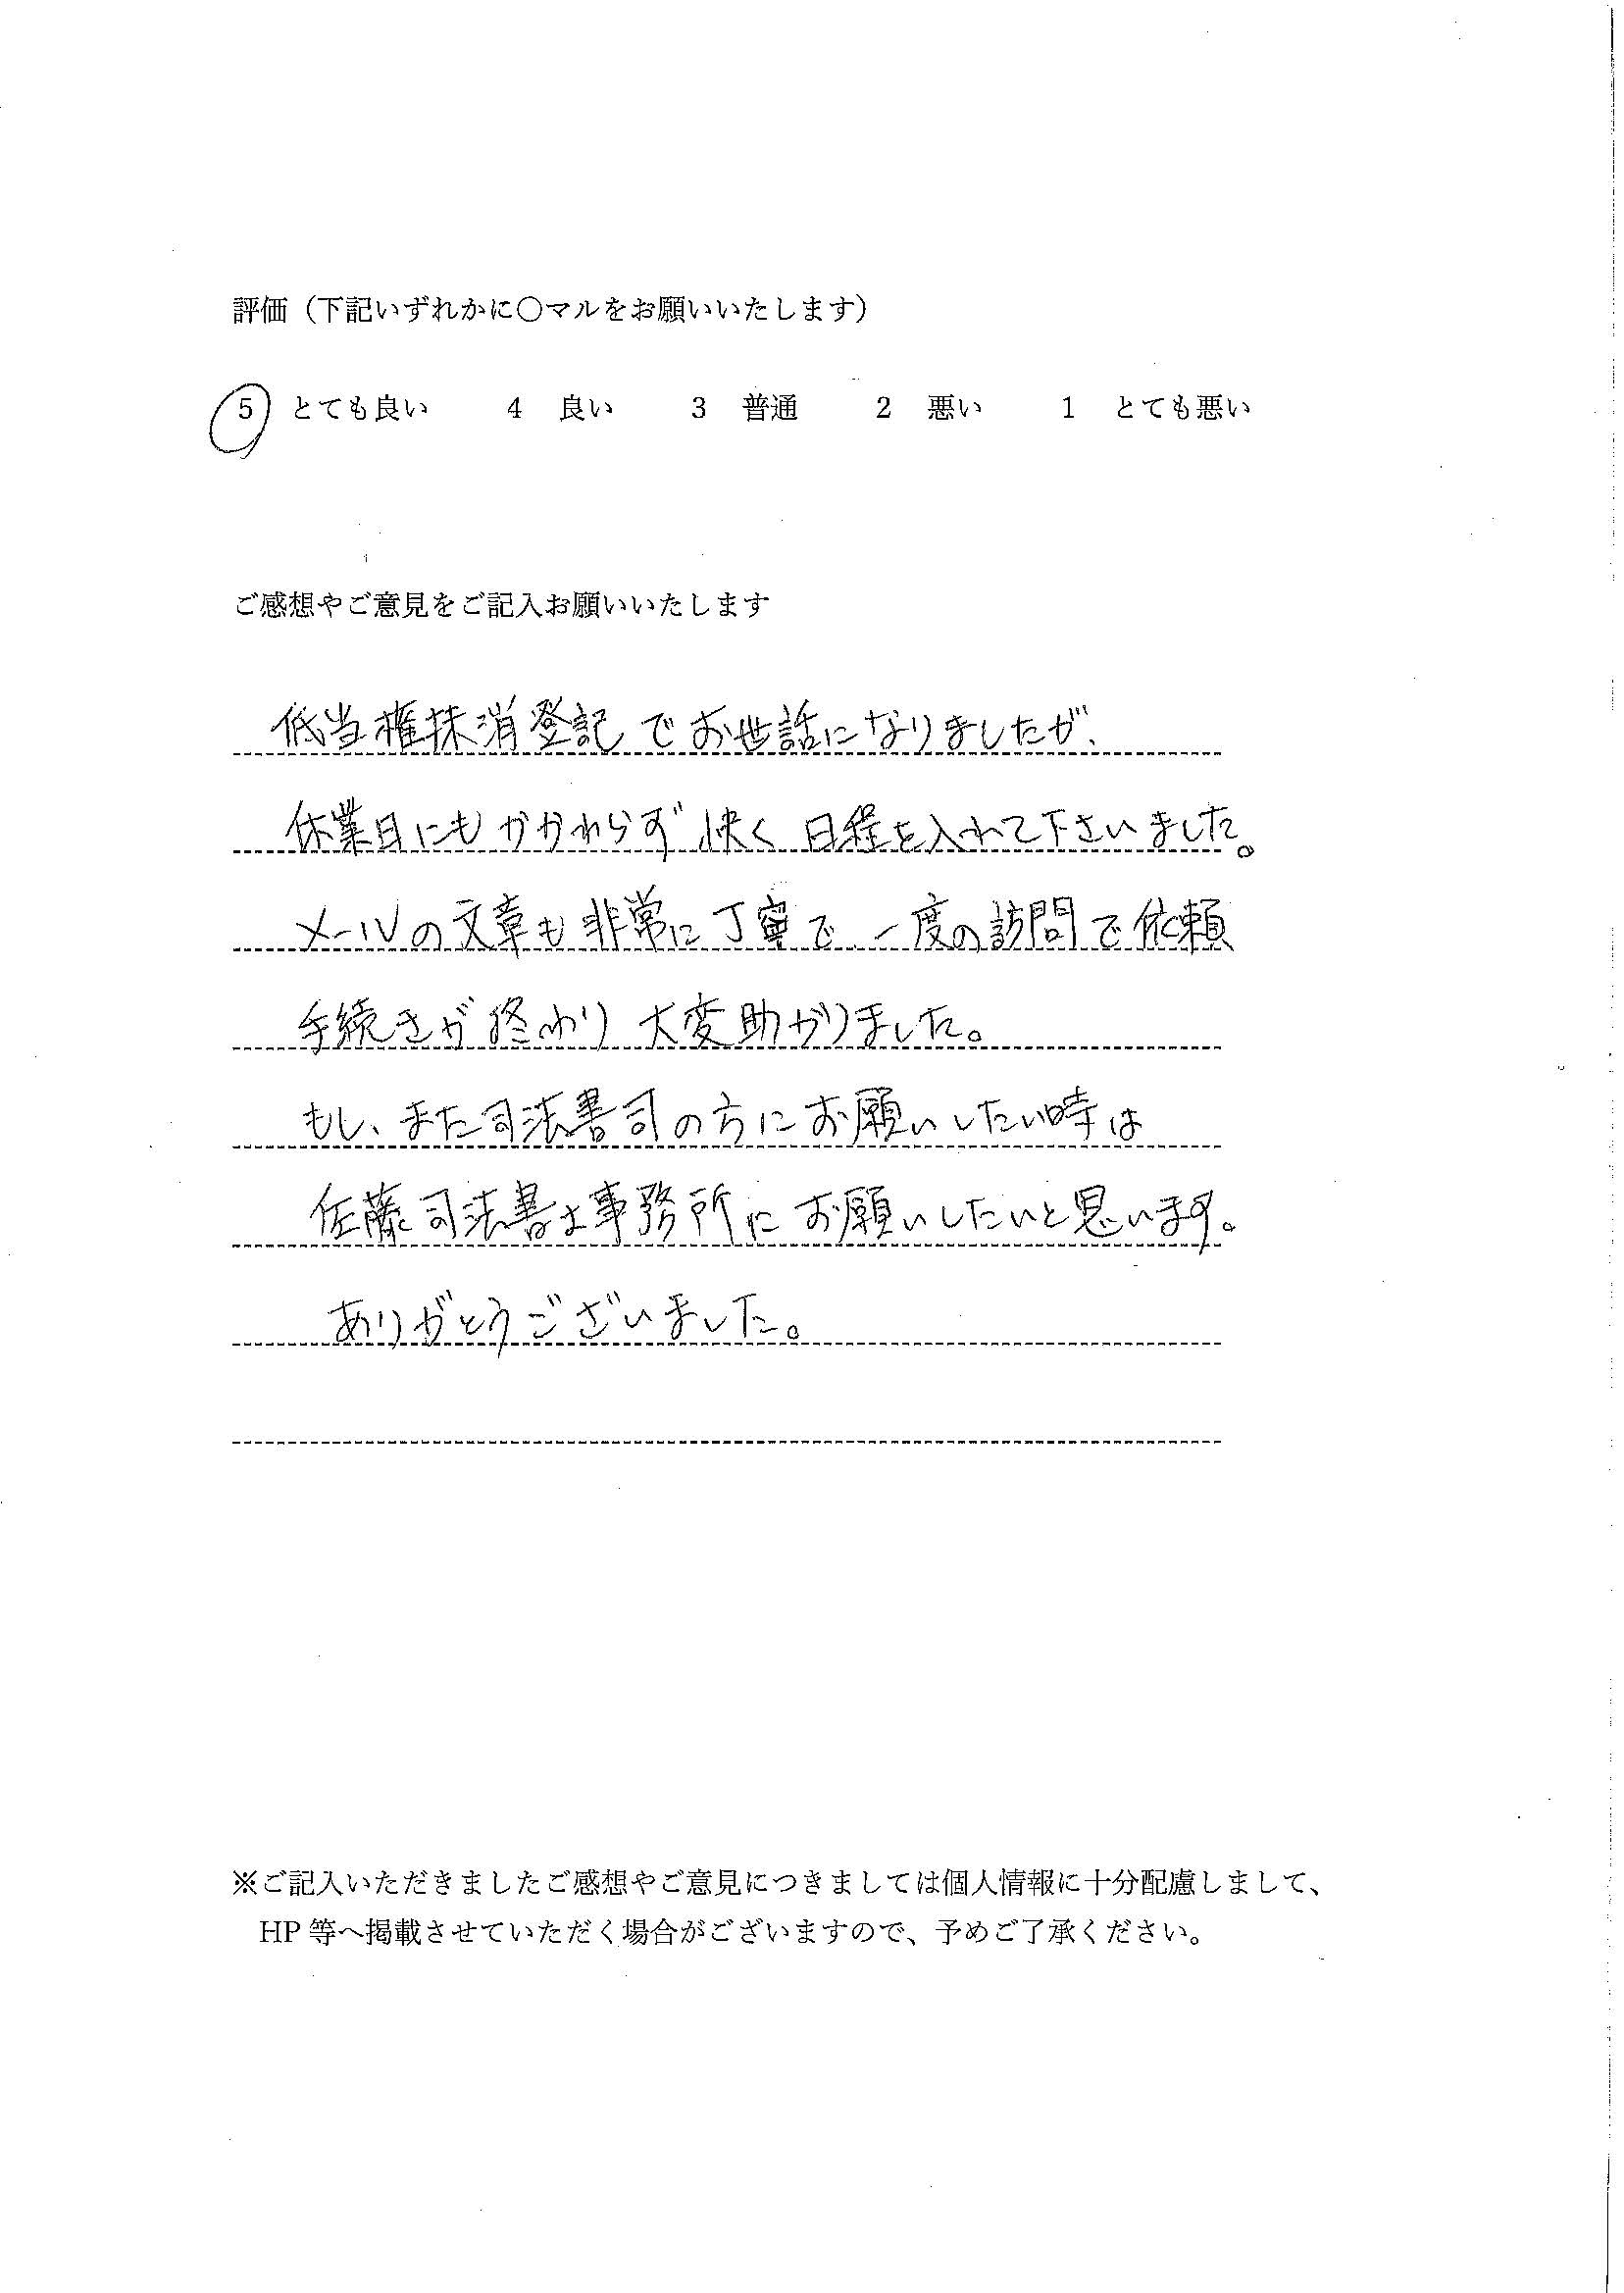 評価（下記いずれかに〇マルをお願いいたします）
5 とても良い 4 良い 3 普通 2 悪い 1 とても悪い
ご感想やご意見をご記入お願いいたします
低当権抹消登記でお世話になりましたが、
休業日にもかかわらず快く日程を入れて下さいました。
メールの文章も非常に丁寧で一度の訪問で依頼
手続きが終わり大変助かりました。
もし、また司法書司の方にお願いしたい時は
佐藤司法書士事務所にお願いしたいと思います。
ありがとうございました。
※ご記入いただきましたご感想やご意見につきましては個人情報に十分配慮しまして、
HP等へ掲載させていただく場合がございますので、予めご了承ください。